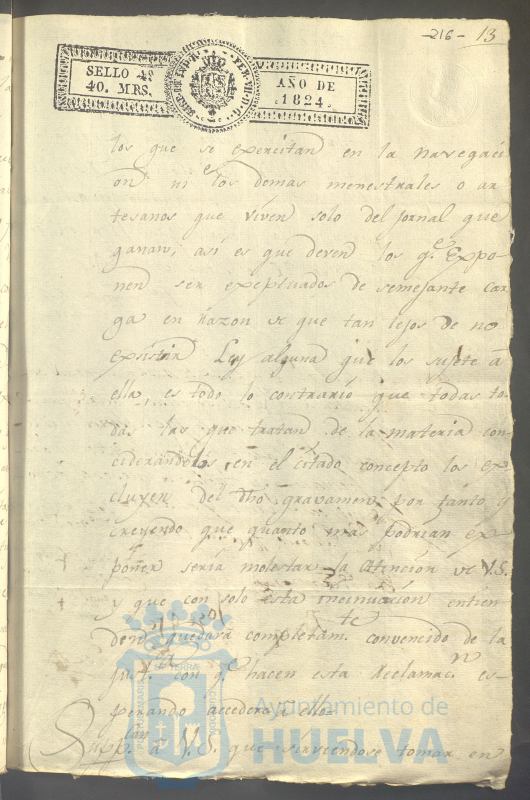 -216- 13
SELLO 4º
40. MRS.
AÑO DE
1824.
los que se exercitan en la navegaci
on ni los demas menestrales o ar
tesanos que viven solo del jornal que
ganan, asi es que deven los qe. Expo-
nen ser exeptuados de semejante car
ga en razon de que tan lejos de no
existir Ley alguna que los sujete a
ella, es todo lo contrario que todas to
das las que tratan de la materia con
ciderandolos en el citado concepto los ex
cluyen del dho gravamen, por tanto y
creyendo que quanto mas podrian ex-
poner seria molestar la atencion de V.S.
y que con solo esta incinuacion entien
den quedará completamte. convencido de la
just. con qe. hacen esta reclamacn. es
perando accedera a ello
Suppcan a V.S. que sirviendose tomar en
Ayuntamiento de
HUELVA